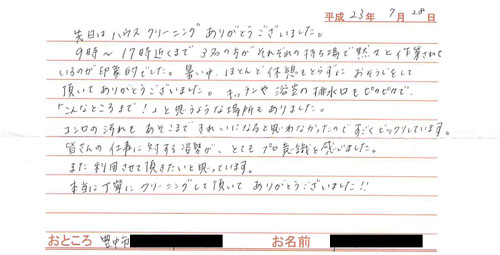 平成 23年 7月 28日
先日は ハウス クリーニング ありがとうございました。
9時〜17時近くまで 3名の方が それぞれの持ち場で 黙々と 作業されて
いるのが 印象的でした。暑い中、ほとんど 休憩もとらずに おそうじをして
頂いて ありがとうございました。キッチンや 浴室の 排水口も ピカピカで、
「こんなところまで！」と 思うような 場所も ありました。
コンロの 汚れも あそこまで きれいになると 思わなかったので すごく ビックリしています。
皆さんの 仕事に対する 姿勢が、とても プロ意識を 感じました。
また 利用させて 頂きたいと 思っています。
本当に 丁寧に クリーニングして 頂いて ありがとうございました!!
おところ 豊中市 お名前